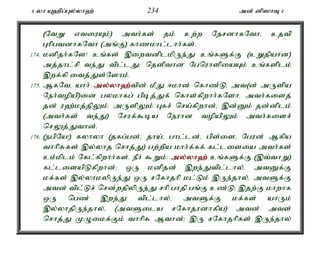 6 லா யுஹிப்புல்லாஹ் 234 அன் னிஸாவு 4
(வேறு எவரையும்) அவர்கள் தம் உற்ற நேசனாகவோ, உதவி
புரிபவனாகவோ (அங்கு) காணமாட்டார்கள்.
174. மனிதர்களே! உங்கள் இறைவனிடமிருந்து உங்களுக்கு (உறுதியான)
அத்தாட்சி வந்து விட்டது; தெளிவான பேரொளியையும் உங்களிடம்
இறக்கி வைத்துள்ளோம்.
175. ஆகவே, யார் அல்லாஹ்வின் மீது ஈமான் கொண்டு, அவ(ன் அருளிய
நேர்வழியி)னை பலமாகப் பிடித்துக் கொள்கிறார்களோ, அவர்களைத்
தன் ரஹ்மத்திலும், அருளிலும் புகச் செய்கிறான்; இன்னும் தன்னிடம்
(அவர்கள் வந்து) சேரக்கூடிய நேரான வழியிலும் அவர்களைச்
செலுத்துவான்.
176. (நபியே!) கலாலா (தகப்பன், தாய், பாட்டன், பிள்ளை, பேரன் ஆகிய
வாரிசுகள் இல்லாத சொத்து) பற்றிய மார்க்கக் கட்டளையை அவர்கள்
உம்மிடம் கேட்கிறார்கள், நீர் கூறும்: அல்லாஹ் உங்களுக்கு (இவ்வாறு)
கட்டளையிடுகிறான்: ஒரு மனிதன் இறந்துவிட்டால், அவனுக்கு
மக்கள் இல்லாமலிருந்து ஒரு சகோதரி மட்டும் இருந்தால், அவளுக்கு
அவன் விட்டுச் சென்றதிலிருந்து சரி பாதி பங்கு உண்டு; இதற்கு மாறாக
ஒரு பெண் இறந்து விட்டால், அவளுக்கு மக்கள் யாரும்
இல்லாதிருந்தால், (அவளுடைய சகோதரனாகிய) அவன் அவள்
சொத்து முழுமைக்கும் வாரிசு ஆவான்; இரு சகோதரிகள் இருந்தால்